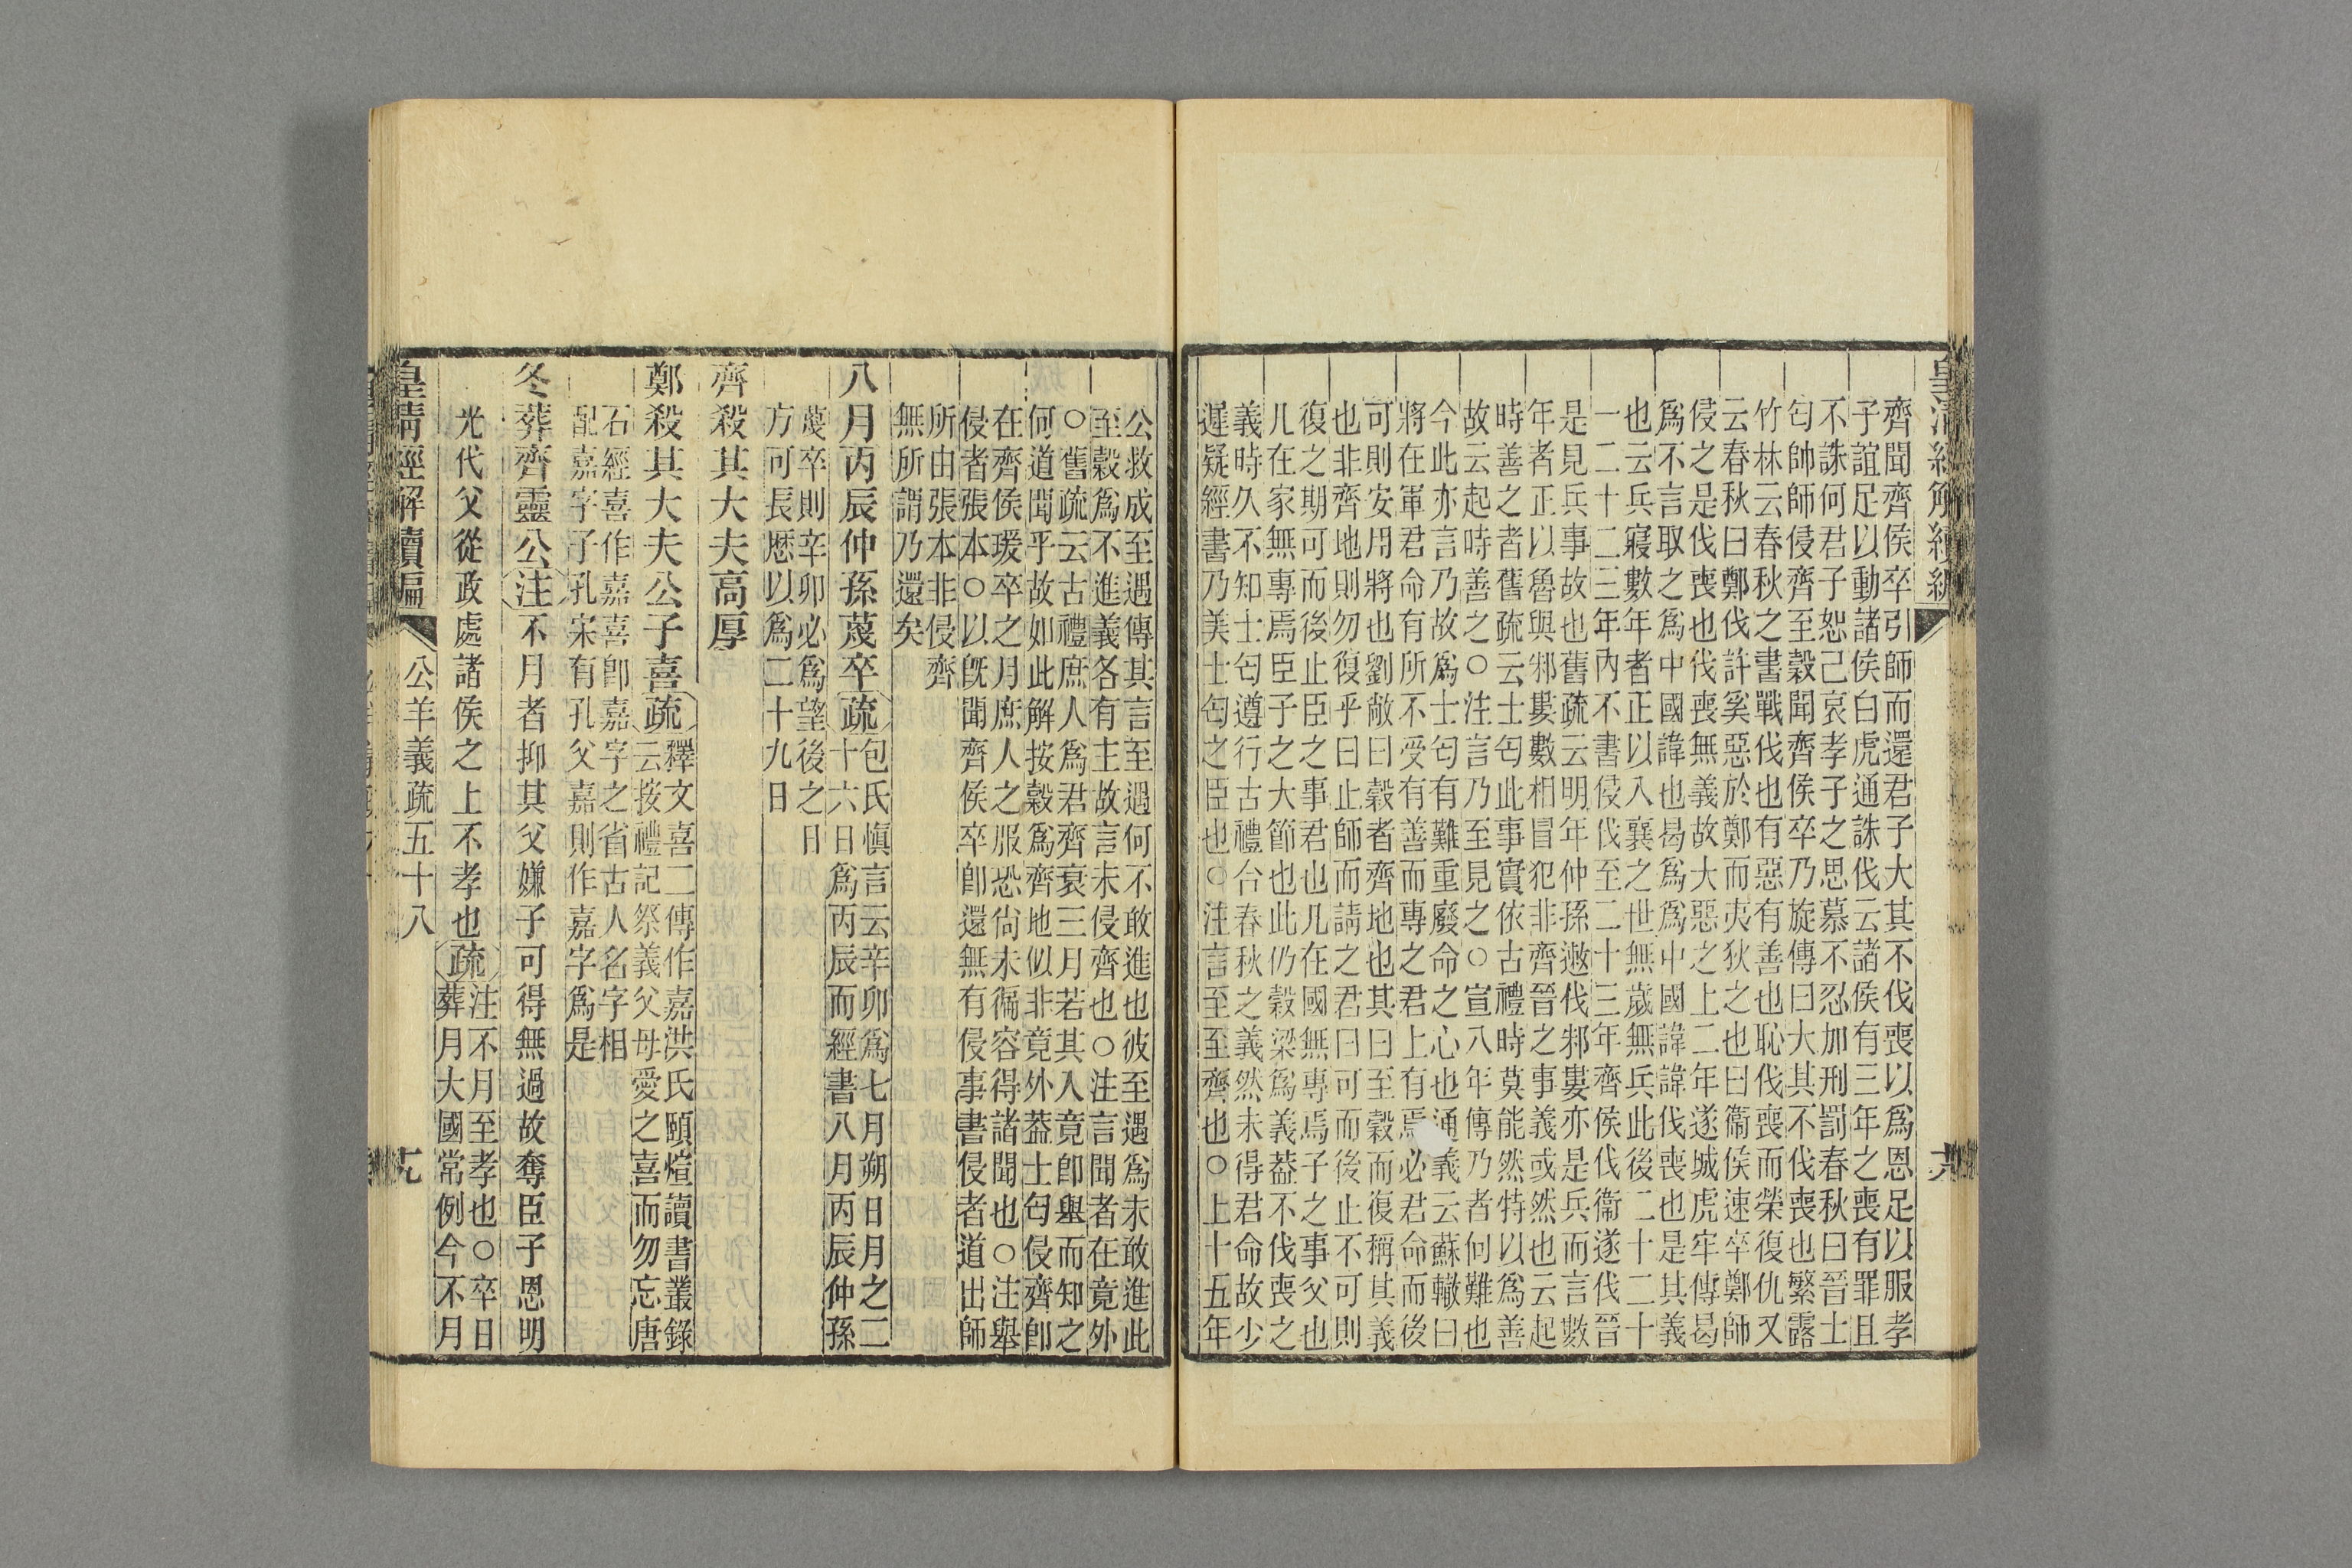 皇清經解續編
大
齊聞齊侯卒引師而還君子大其不伐喪以爲恩足以服孝
子誼足以動諸侯白虎通誅伐云諸侯有三年之喪有罪且
不誅何君子恕己哀孝子之思慕不忍加刑罰春秋曰晉士
匄帥師侵齊至穀聞齊侯卒乃旋傳曰大其不伐喪也繁露
竹林云春秋之書戰伐也有惡有善也恥伐喪而榮復仇又
云春秋曰鄭伐許奚惡於鄭而夷狄之也曰衞侯速卒鄭師
侵之是伐喪也伐喪無義故大惡之上二年遂城虎牢傳曷
爲不言取之爲中國諱也曷爲爲中國諱諱伐喪也是其義
也云兵寢數年者正以入襄之世無歲無兵此後二十二十
一二十二三年內不書侵伐至二十三年齊侯伐衞遂伐晉
是見兵事故也舊疏云明年仲孫遬伐邾婁亦是兵而言數
年者正以魯與邾婁數相冒犯非齊晉之事義或然也云起
時善之者舊疏云士匄此事實依古禮時莫能然特以爲善
故云起時善之○注言乃至見之○宣八年傳乃者何難也
今此亦言乃故爲士匄有難重廢命之心也通義云蘇轍曰
將在軍君命有所不受有善而專之君上有焉必君命而後
可則安用將也劉敞曰穀者齊地也其曰至穀而復稱其義
也非齊地則勿復乎曰止師而請之君曰可而後止不可則
復之期可而後止臣之事君也凡在國無專焉子之事父也
凡在家無專焉臣子之大節也此仍穀梁爲義葢不伐喪之
義時久不知士匄遵行古禮合春秋之義然未得君命故少
遲疑經書乃美士匄之臣也○注言至至齊也○上十五年
公救成至遇傳其言至遇何不敢進也彼至遇爲未敢進此
至穀爲不進義各有主故言未侵齊也○注言聞者在竟外
○舊疏云古禮庶人爲君齊衰三月若其入竟卽舉而知之
何道聞乎故如此解按穀爲齊地似非竟外葢士匄侵齊卽
在齊侯瑗卒之月庶人之服恐尙未徧容得諸聞也○注舉
侵者張本○以旣聞齊侯卒卽還無有侵事書侵者道出師
所由張本非侵齊
無所謂乃還矣
八月丙辰仲孫蔑卒疏
包氏愼言云辛卯爲七月朔日月之二
十六日爲丙辰而經書八月丙辰仲孫
蔑卒則辛卯必爲望後之日
方可長厯以爲二十九日
齊殺其大夫高厚
鄭殺其大夫公子喜疏
釋文喜二傳作嘉洪氏頤煊讀書叢錄
云按禮記祭義父母愛之喜而勿忘唐
石經喜作嘉喜卽嘉字之省古人名字相
配嘉字子孔宋有孔父嘉則作嘉字爲是
冬葬齊靈公注不月者抑其父嫌子可得無過故奪臣子恩明
光代父從政處諸侯之上不孝也疏
注不月至孝也○卒日
葬月大國常例今不月
皇清經解續編
公羊義疏五十八